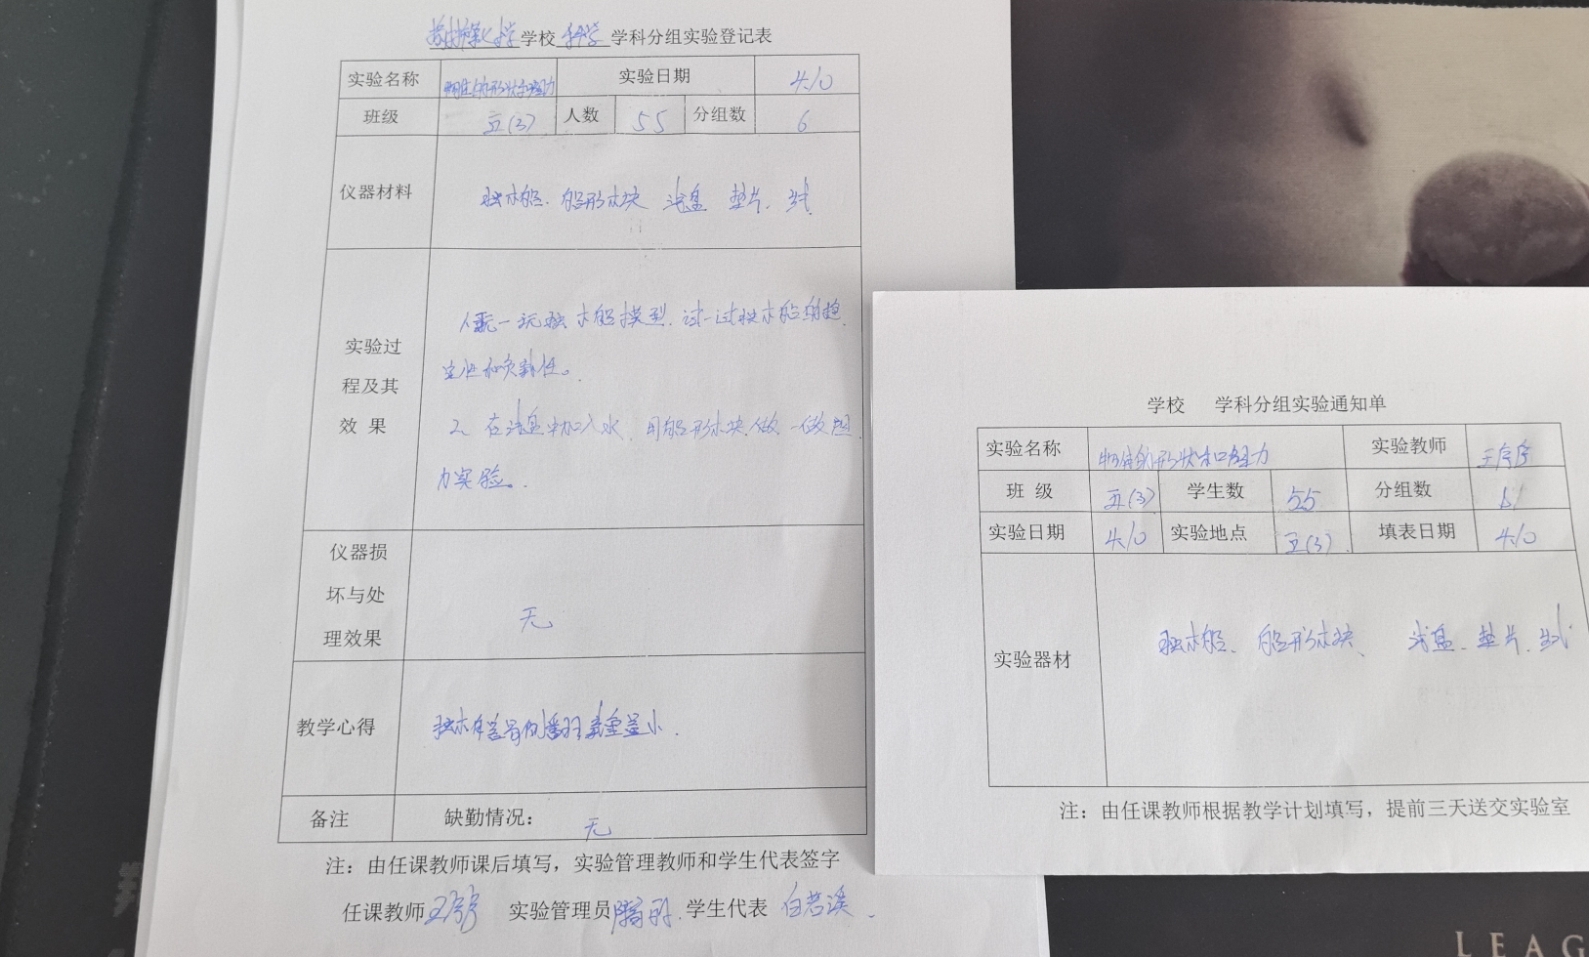 学校 科学 学科分组实验登记表
实验名称 物体的形状和阻力 实验日期 4.10
班级 五(3) 人数 55 分组数 6
仪器材料 独木船、船形木块 浅盘 垫片、线
1、玩一玩独木船模型,试一试独木船的稳
实验过
定性和负载性。
程及其
效 果 2、在浅盘中加入水,用船形木块做一做阻
力实验。
仪器损
坏与处
无
理效果
教学心得 独木舟容易侧翻,载重量小.
备注 缺勤情况: 无
注:由任课教师课后填写,实验管理教师和学生代表签字
任课教师 实验管理员 学生代表
学校 学科分组实验通知单
实验名称 物体的形状和阻力 实验教师
班 级 五(3) 学生数 55 分组数
实验日期 4.10 实验地点 五(3) 填表日期 4.10
实验器材 独木船、船形木块、 浅盘、垫片、线
注:由任课教师根据教学计划填写,提前三天送交实验室
LEAG